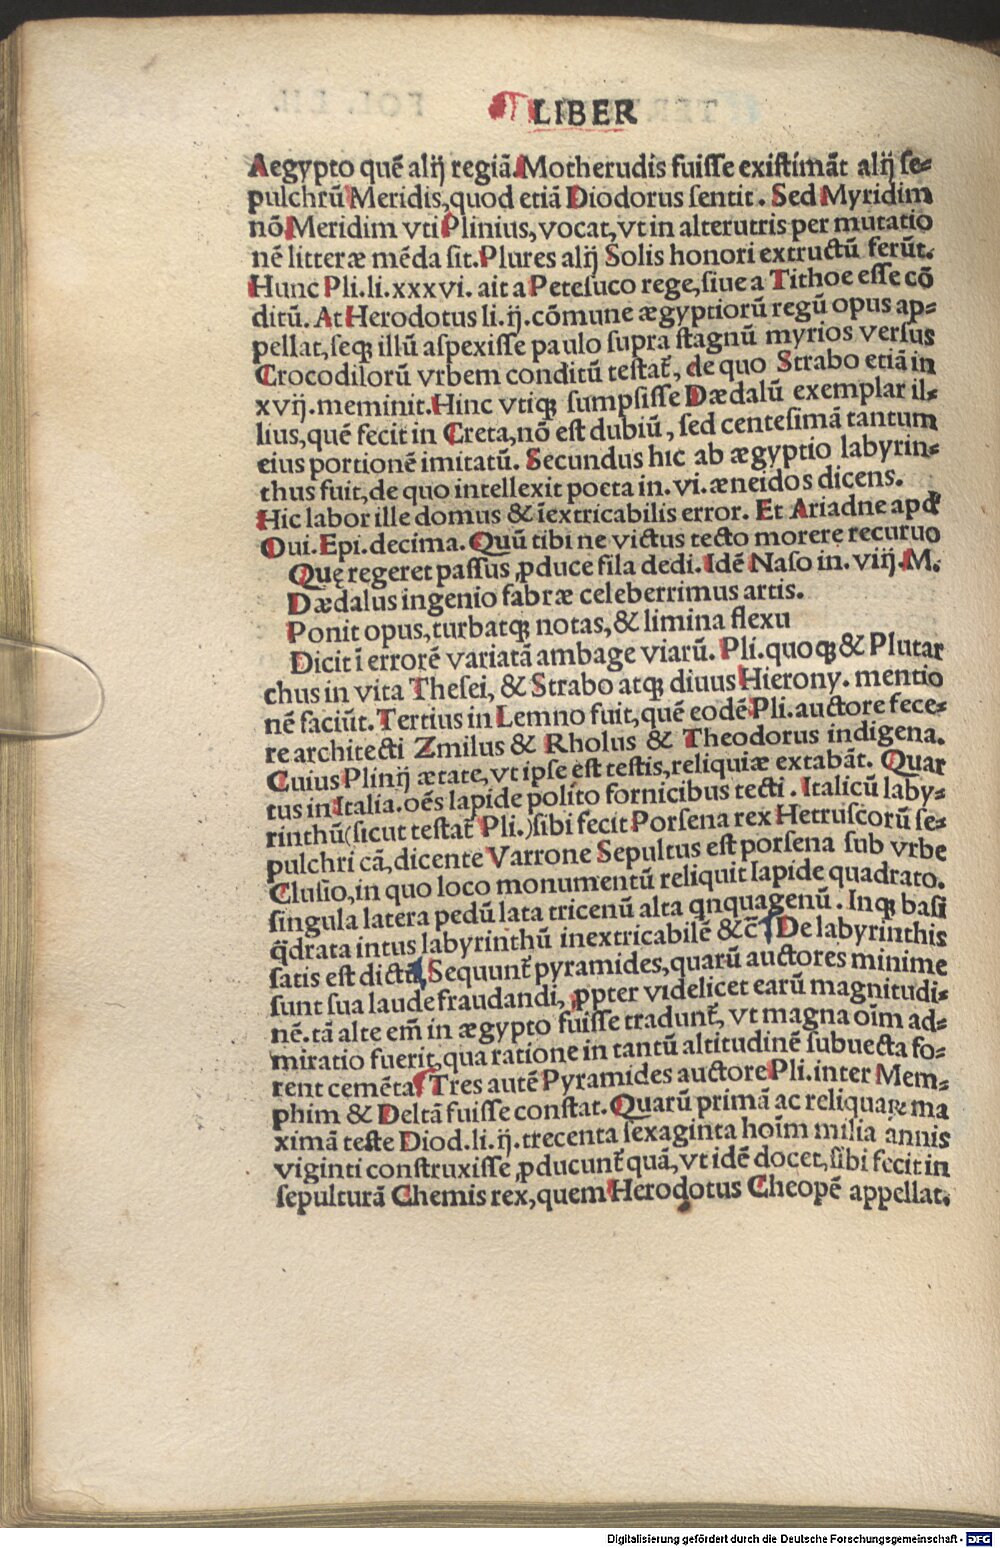 LIBER
Aegypto quē alij regiā Motherudis fuiſſe exiſtimāt alij ſe⸗
pulchrū Meridis,quod etiā Diodorus ſentit. Sed Myridim
nō Meridim vti Plinius,vocat,vt in alterutris per mutatio
nē litteræ mēda ſit.Plures alij Solis honori extructū ferūt.
Hunc Pli.li.xxxvi. ait a Peteſuco rege,ſiue a Tithoe eſſe cō
ditū. At Herodotus li.ij.cōmune ægyptiorū regū opus ap⸗
pellat,ſeqꝫ illū aſpexiſſe paulo ſupra ſtagnū myrios verſus
Crocodilorū vrbem conditū teſtat᷑, de quo Strabo etiā in
xvij.meminit.Hinc vtiqꝫ ſumpſiſſe Dædalū exemplar il⸗
lius,quē fecit in Creta,nō eſt dubiū, ſed centeſimā tantum
eius portionē imitatū. Secundus hic ab ægyptio labyrin⸗
thus fuit,de quo intellexit poeta in.vi.æneidos dicens.
Hic labor ille domus & īextricabilis error. Et Ariadne apđ
Oui.Epi.decima.Quū tibi ne victus tecto morere recuruo
Quę regeret paſſus ꝓduce fila dedi.Idē Naſo in.viij.M.
Dædalus ingenio fabræ celeberrimus artis.
Ponit opus,turbatqꝫ notas,& limina flexu
Dicit ī errorē variatā ambage viarū. Pli.quoqꝫ & Plutar
chus in vita Theſei, & Strabo atqꝫ diuus Hierony. mentio
nē faciūt. Tertius in Lemno fuit,quē eodē Pli.auctore fece⸗
re architecti Zmilus & Rholus & Theodorus indigena.
Cuius Plinij ætate,vt ipſe eſt teſtis,reliquiæ extabāt. Quar
tus in Italia.oēs lapide polito fornicibus tecti. Italicū laby⸗
rinthū(ſicut teſtat᷑ Pli.)ſibi fecit Porſena rex Hetruſcorū ſe⸗
pulchri cā,dicente Varrone Sepultus eſt porſena ſub vrbe
Cluſio,in quo loco monumentū reliquit lapide quadrato.
ſingula latera pedū lata tricenū alta qnquagenū. Inqꝫ baſi
q̄drata intus labyrinthū inextricabilē &c̄ De labyrinthis
ſatis eſt dictū Sequunt᷑ pyramides,quarū auctores minime
ſunt ſua laude fraudandi, ꝓpter videlicet earū magnitudi⸗
nē.tā alte em̄ in ægypto fuiſſe tradunt᷑, vt magna oīm ad⸗
miratio fuerit,qua ratione in tantū altitudinē ſubuecta fo⸗
rent cemēta Tres autē Pyramides auctore Pli.inter Mem⸗
phim & Deltā fuiſſe conſtat. Quarū primā ac reliquaꝝ ma
ximā teſte Diod.li.ij.trecenta ſexaginta hoīm milia annis
viginti conſtruxiſſe ꝓducunt᷑ quā,vt idē docet,ſibi fecit in
ſepulturā Chemis rex,quem Herodotus Cheopē appellat.
Digitalisierung gefördert durch die Deutsche Forschungsgemeinschaft - DFG